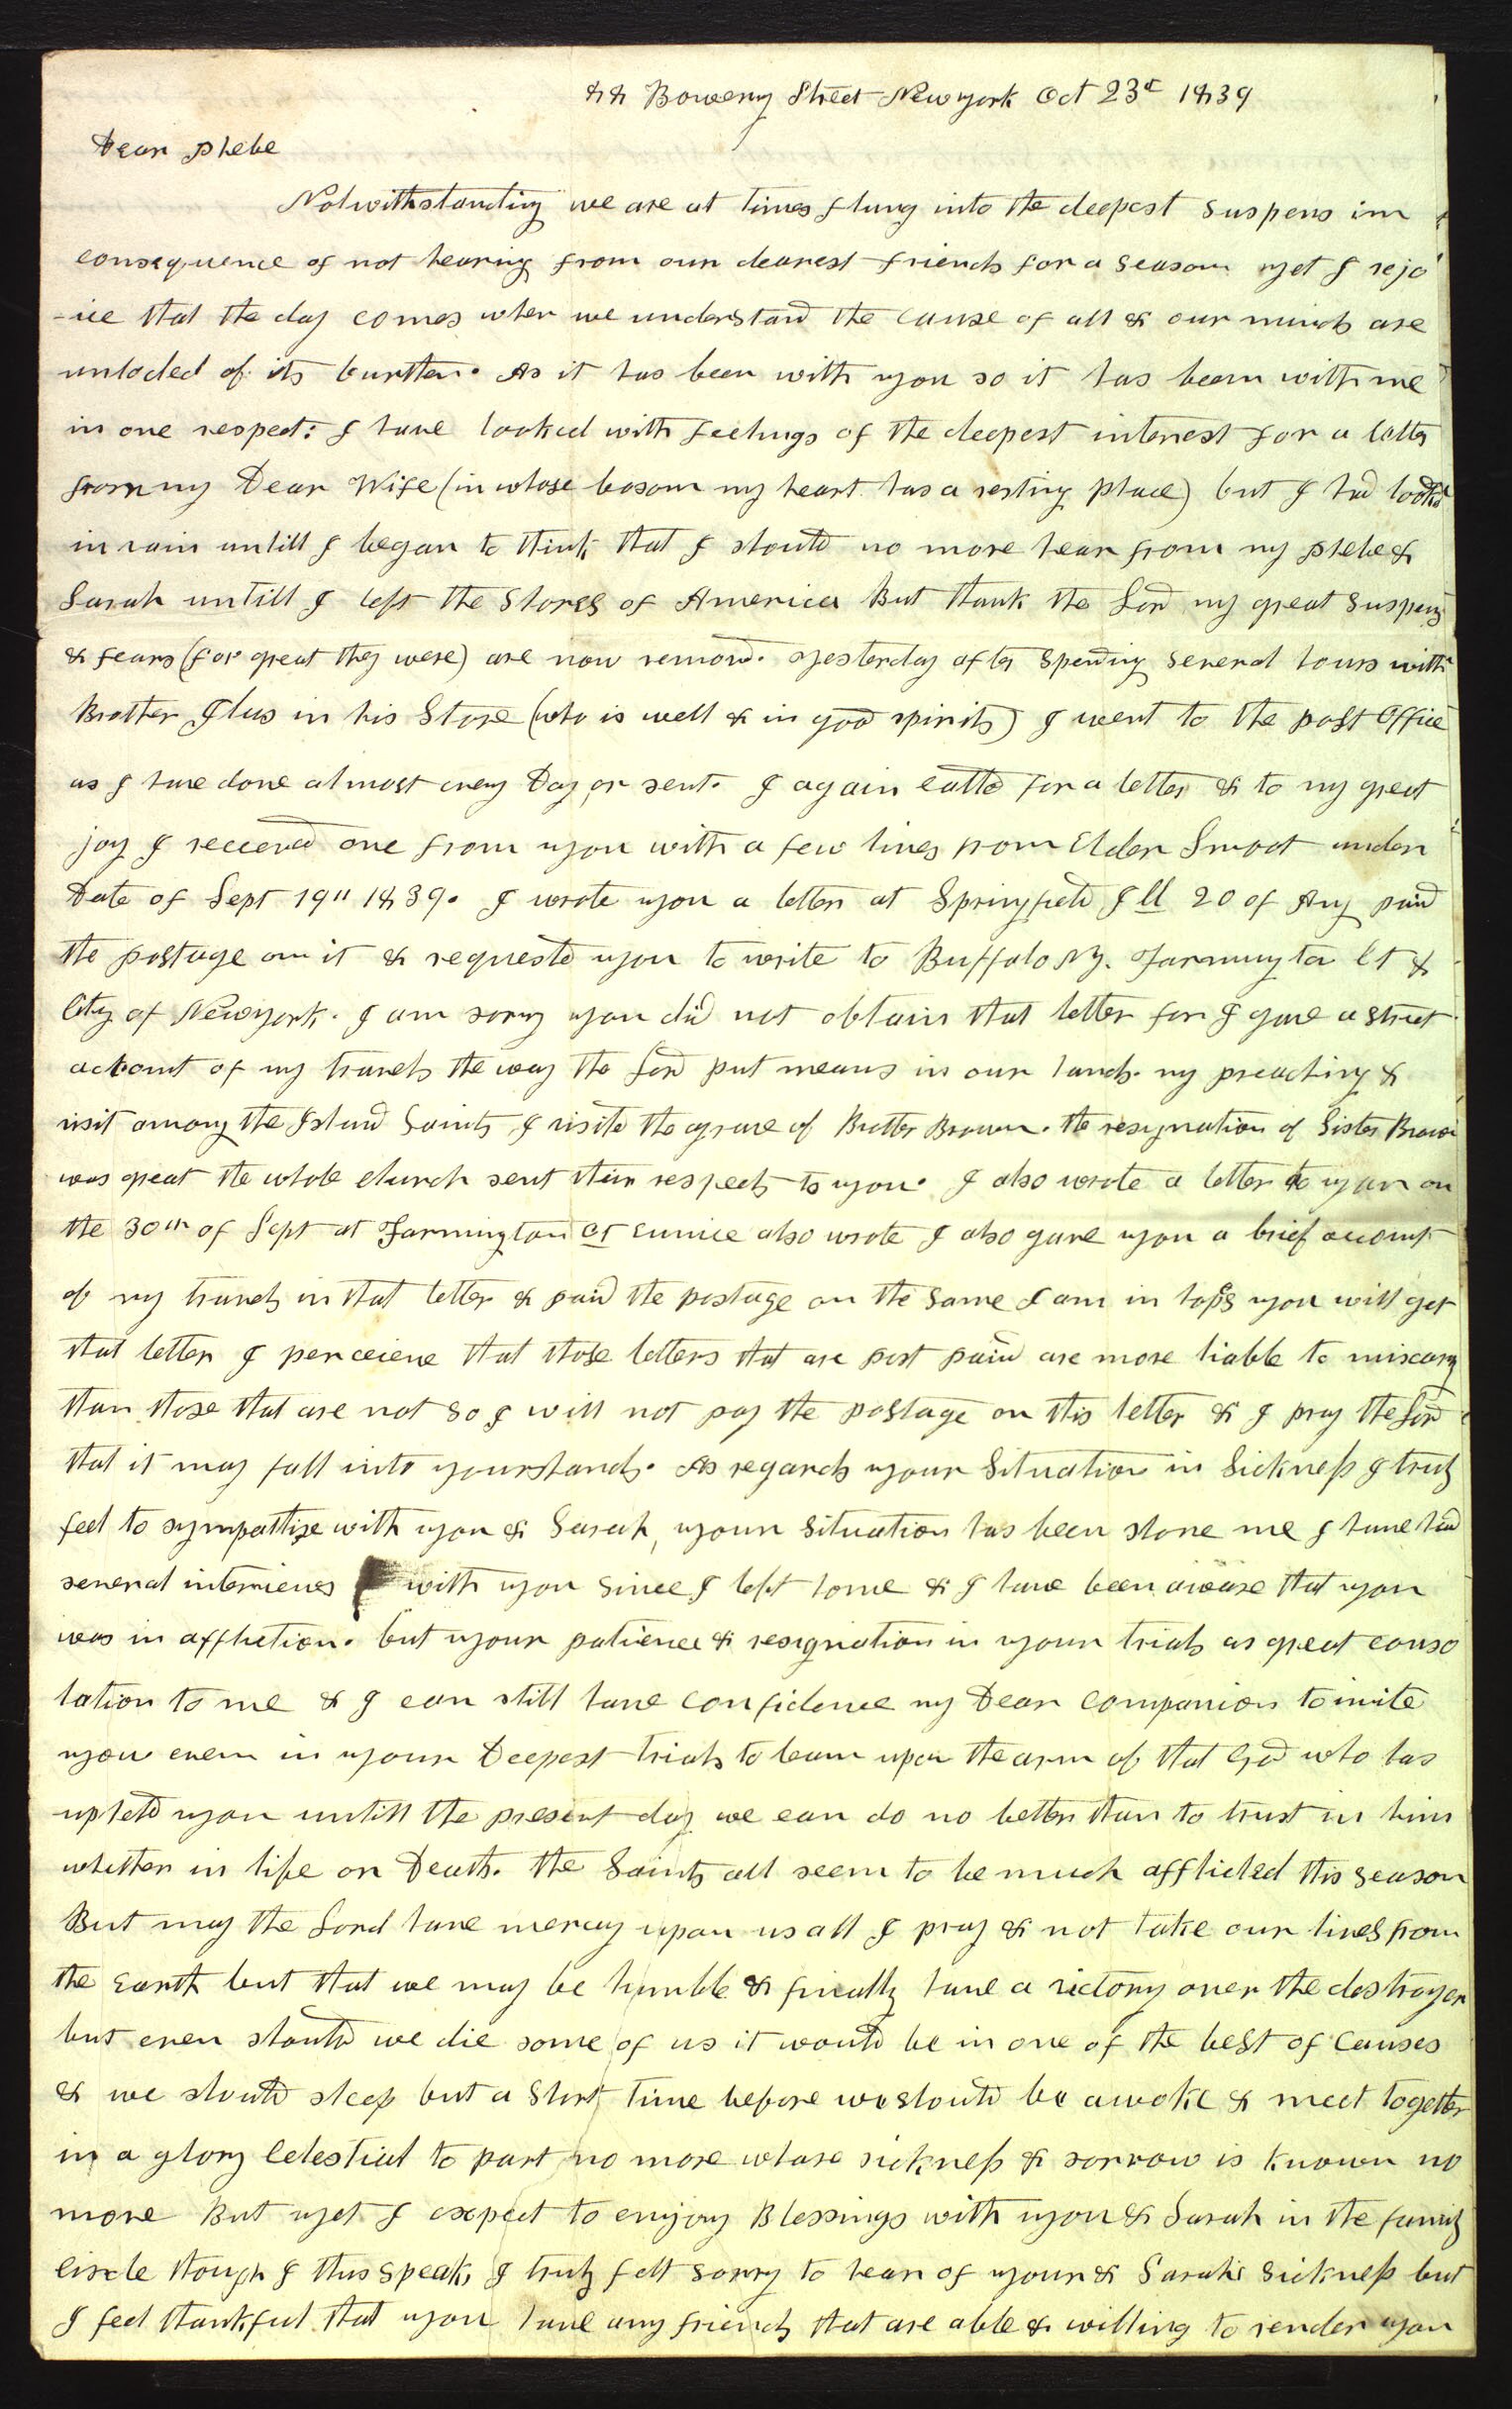 88 Bowery Street New york Oct 23d 1839
Dear Phebe
Notwithstanding we are at times flung into the deepest suspens in
consequence of not hearing from our dearest friends for a season yet I rejo
-ice that the day comes when we understand the cause of all & our minds are
unloded of its burthen. As it has been with you so it has been with me
in one respect: I have looked with feelings of the deepest interest for a letter
from my Dear Wife (in whose bosom my heart has a resting place) but I had looked
in vain untill I began to think that I should no more hear from my Phebe &
Sarah untill I left the Shores of America But thank the Lord my great suspens
& fears (for great they were) are now removd. Yesterday after spending several hours with
Brother Ilus in his Store (who is well & in good spirits) I went to the post Office
as I have done almost every Day or sent. I again calld for a letter & to my great
joy I receeved one from you with a few lines from Elder Smoot under
Date of Sept 19th 1839. I wrote you a letter at Springfield Ill 20 of Aug paid
the postage on it & requestd you to write to Buffalo NY. Farmington Ct &
City of New york. I am sorry you did not obtain that letter for I gave a strict
account of my travels the way the Lord put means in our hands. my preaching &
visit among the Island Saints I visitd the grave of Brother Brown. the resignation of Sister Brown
was great the whole church sent their respects to you. I also wrote a letter to you on
the 30th of Sept at Farmington Ct Eunice also wrote I also gave you a brief account
of my travels in that letter & paid the postage on the same I am in hopes you will get
that letter I perceieve that those letters that are post paid are more liable to miscary
than those that are not so I will not pay the postage on this letter & I pray the Lord
that it may fall into yourshands. As regards your situation in Sickness I truly
feel to sympathize with you & Sarah, your situation has been shone me I have had
several interviews with you since I left home & I have been aware that you
was in affliction. but your patience & resignation in your trials as great conso
lation to me & I can still have confidence my Dear companion to invite
you even in your Deepest trials to lean upon the arm of that God who has
upheld you untill the present day we can do no better than to trust in him
whether in life or Death. the Saints all seem to be much afflicted this season
But may the Lord have mercy upon us all I pray & not take our lives from
the earth but that we may be humble & finally have a victory over the destroyer
but even should we die some of us it would be in one of the best of causes
& we should sleep but a short time before we should be awoke & meet together
in a glory Celestial to part no more whare sickness & sorrow is known no
more But yet I expect to enjoy Blessings with you & Sarah in the family
circle though I thus speak, I truly felt sorry to hear of your & Sarahs sickness but
I feel thankful that you have any friends that are able & willing to render you